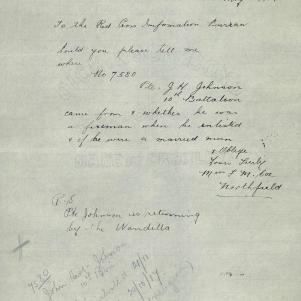 To the Red Cross Information Bureau
Could you please tell me
where
No 7580
Pte. J H Johnson
10th Battalion
came from & whether he was
a fireman when he enlisted
& if he were a married man
& Oblige
Yours Truly
Northfield
P.S
Pte Johnson is returning
by the Wandilla
7580
John Johnson